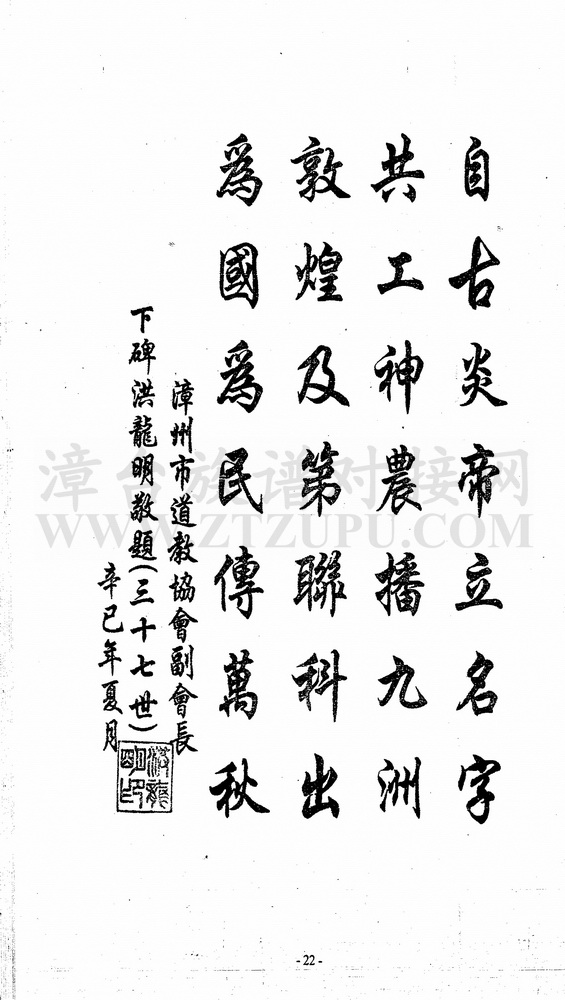 自古炎帝立名字
共工神農播九洲
敦煌及第聯科出
爲國爲民傳萬秋
漳州市道教協會副會長
下碑洪龍明敬題(三十七世)
辛巳年夏月
洪龍明印
漳台族谱对接网
WWW.ZTZUPU.COM
- 22 -